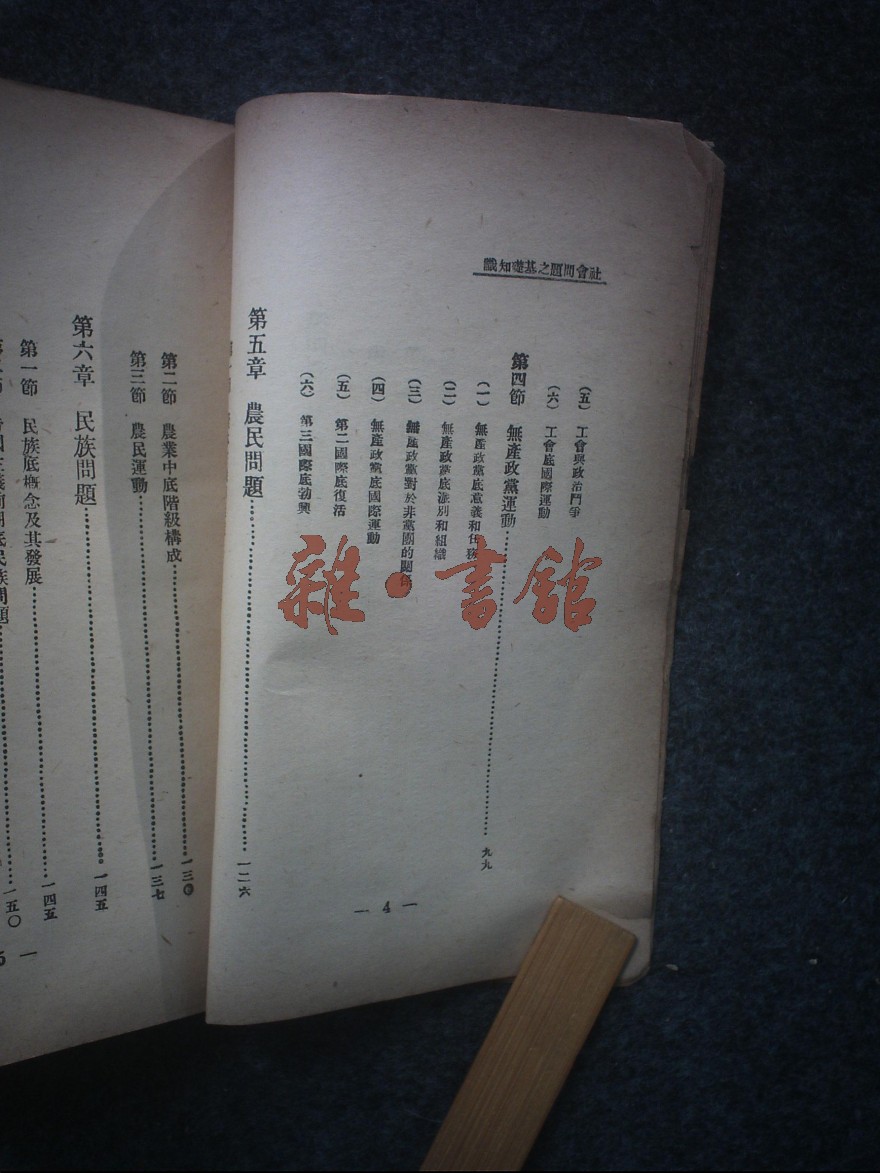 社會問題之基礎知識
(五) 工會與政治鬥爭
(六) 工會底國際運動
第四節 無產政黨運動……九九
(一) 無產政黨底意義和任務
(二) 無產政黨底派別和組織
(三) 無產政黨對於非黨團的關係
(四) 無產政黨底國際運動
(五) 第二國際底復活
(六) 第三國際底勃興
第五章 農民問題……一二六
— 4 —
第二節 農業中底階級構成……一三〇
第三節 農民運動……一三七
第六章 民族問題……一四五
第一節 民族底概念及其發展……一四五
底民族問題……一五〇
雜·書館